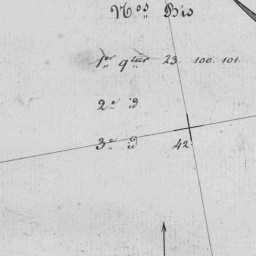 Nos Bis
1er qtier 23. 100. 101.
2e id
3e id 42